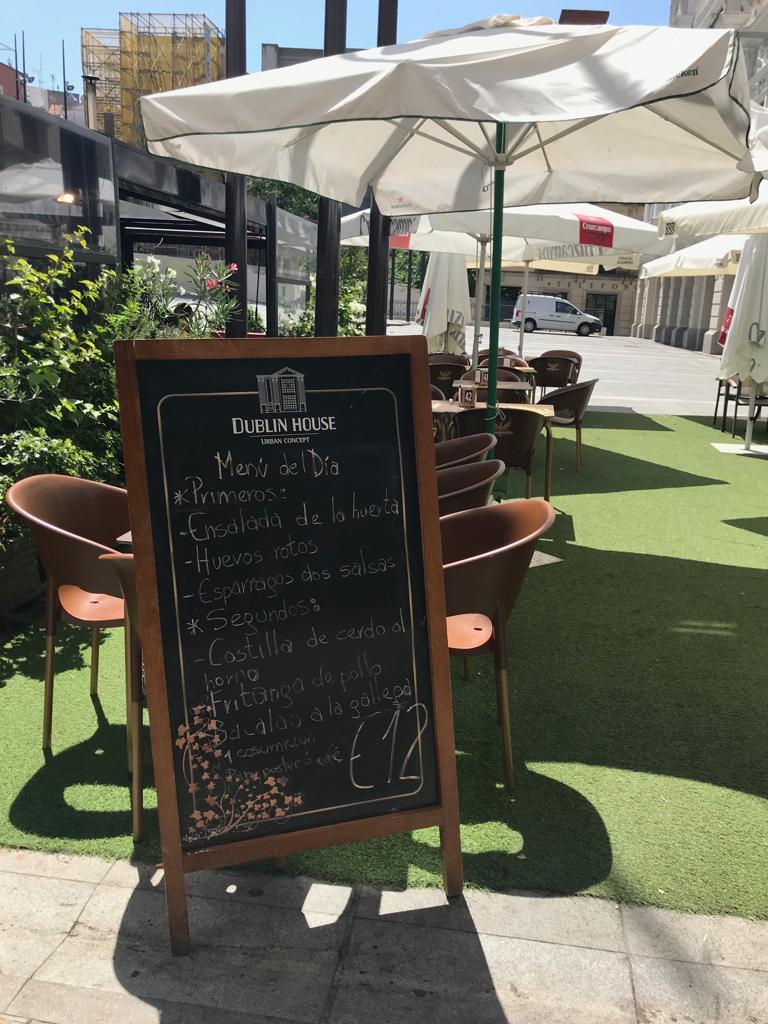 DUBLIN HOUSE
URBAN CONCEPT
Menú del Día
*Primeros:
-Ensalada de la huerta
-Huevos rotos
-Esparragos dos salsas
*Segundos:
-Costilla de cerdo al
horno
-Fritanga de pollo
-Bacalao a la gallega
1 cosumicion
Pan, postre ó café
€12
Cruzcampo
42
TELEFON